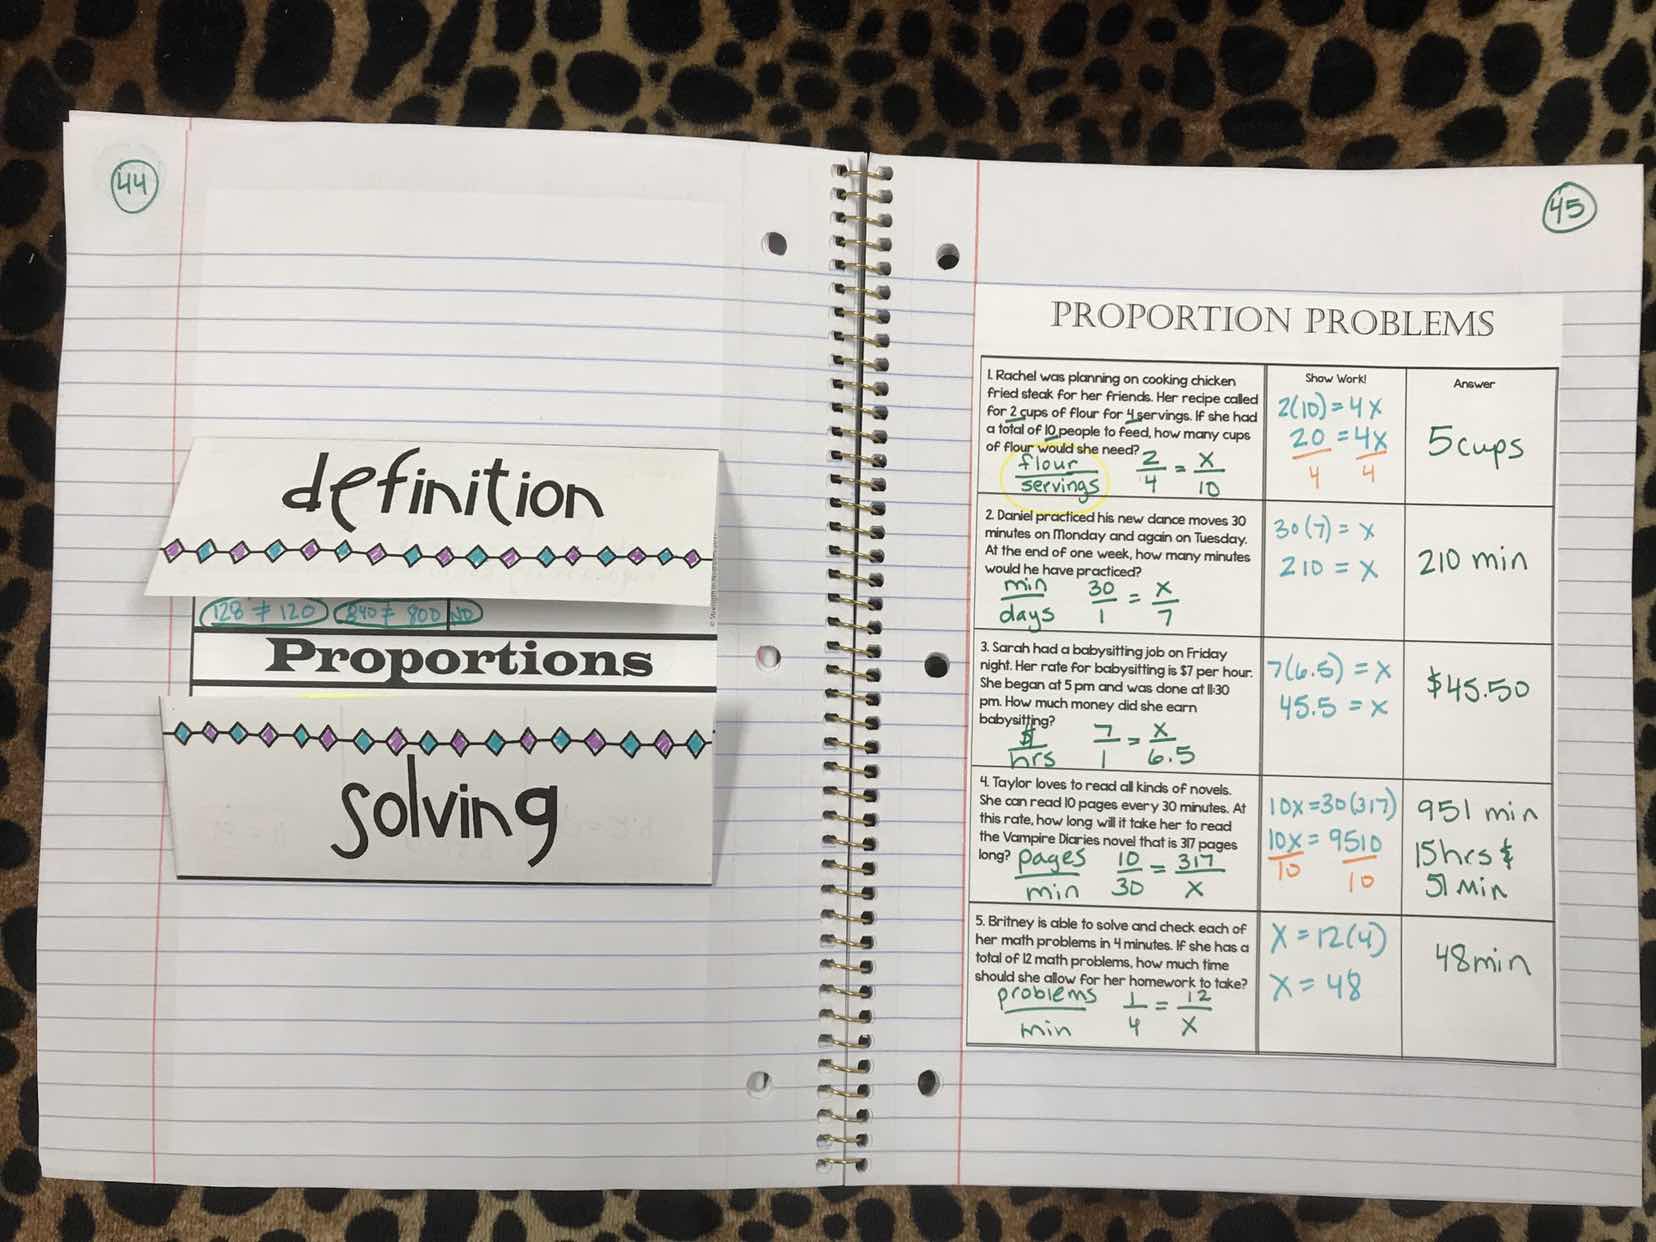 44
definition
128 ≠ 120 840 ≠ 800 NO
Proportions
solving
45
PROPORTION PROBLEMS
1. Rachel was planning on cooking chicken
fried steak for her friends. Her recipe called
for 2 cups of flour for 4 servings. If she had
a total of 10 people to feed, how many cups
of flour would she need?
flour
servings
2/4 = x/10
Show Work!
2(10) = 4x
20 = 4x
4 4
Answer
5 cups
2. Daniel practiced his new dance moves 30
minutes on Monday and again on Tuesday.
At the end of one week, how many minutes
would he have practiced?
min
days
30/1 = x/7
30(7) = x
210 = x
210 min
3. Sarah had a babysitting job on Friday
night. Her rate for babysitting is $7 per hour.
She began at 5 pm and was done at 11:30
pm. How much money did she earn
babysitting?
$
hrs
7/1 = x/6.5
7(6.5) = x
45.5 = x
$45.50
4. Taylor loves to read all kinds of novels.
She can read 10 pages every 30 minutes. At
this rate, how long will it take her to read
the Vampire Diaries novel that is 317 pages
long?
pages
min
10/30 = 317/x
10x = 30(317)
10x = 9510
10 10
951 min
15hrs &
51 min
5. Britney is able to solve and check each of
her math problems in 4 minutes. If she has a
total of 12 math problems, how much time
should she allow for her homework to take?
problems
min
1/4 = 12/x
x = 12(4)
x = 48
48min